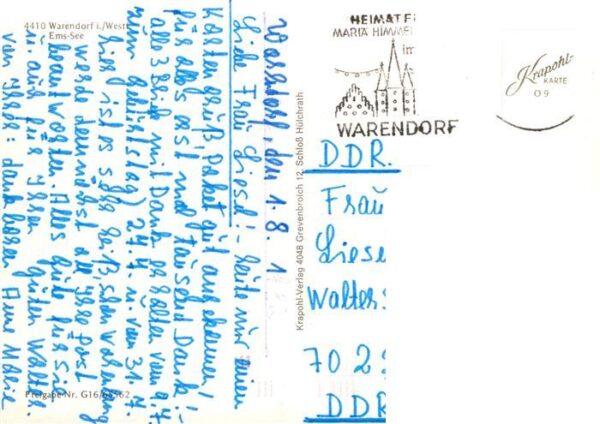 4410 Warendorf i./Westf
Ems-See
Warendorf, den 1.8.1
Liebe Frau Liesel! - heute nur einen
Karten gruß, Paket gut angekommen!
für alles erst mal tausend Dank! -
alle 3 Briefe mit Dank erhalten vom 9.7.
27.7. u. vom 31.7.
hier ist es sehr heiß, schon Wochenlang
werde demnächst all Ihre Post
beantworten. Alles Gute für Sie
u. auch für Ihren guten Walter.
von Ihrer: dankbaren Anne Marie
Freigabe-Nr.
Krapohl-Verlag 4048 Grevenbroich 12, Schloß Hülchrath
HEIMATFE
MARIÄ HIMMEL
in
WARENDORF
Krapohl-
KARTE
09
DDR.
Frau
Liese
Walter
702
DDR